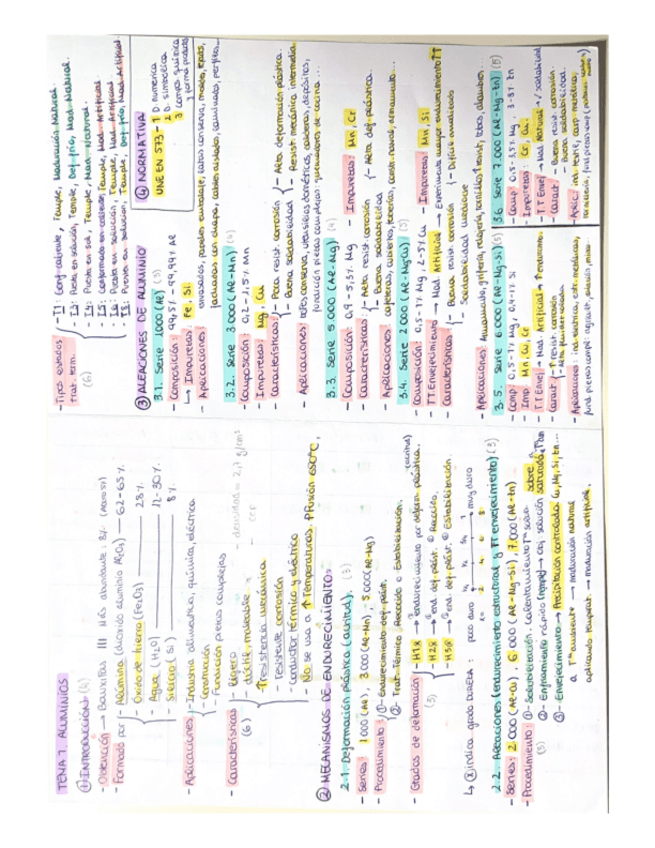 TEMA 7. ALUMINIOS
① INTRODUCCIÓN: (4)
- Obtención → Bauxitas III Más abundante: 8% (Marrón)
- Formado por - Alúmina (dióxido aluminio Al2O3) — 62-65%
- Óxido de hierro (Fe2O3) — 28%
- Agua (H2O) — 12-30%
- Silicio (Si) — 8%
- Aplicaciones - Industria alimenticia, química, eléctrica
- Construcción
- Fundición piezas complejas
- Características - ligero densidad = 2,7 g/cm3
(6) - dúctil, maleable - ccp
- ↑ resistencia mecánica
- resistente corrosión
- conductor térmico y eléctrico
- No se usa a ↑ Temperaturas. P fusión 650ºC.
② MECANISMOS DE ENDURECIMIENTO:
2.1. Deformación plástica (acritud). (3)
- Series: 1000 (Al), 3000 (Al-Mn), 5000 (Al-Mg)
- Procedimiento: ① Endurecimiento def. plást.
② Trat. Térmico: Recocido o Estabilización.
- Grados de deformación - H1X → endurecimiento por deform. plástica. (acritud)
(5) - H2X → "end. def. plást. ⊕ Recocido.
- H3X → "end. def. plást. ⊕ Estabilización.
↳ ⓧ indica grado DUREZA: poco duro 1/4 1/2 3/4 1 muy duro
x = 2 4 6 8
2.2. Aleaciones (endurecimiento estructural y TT envejecimiento) (3)
- Series: 2000 (Al-Cu), 6000 (Al-Mg-Si), 7000 (Al-Zn)
- Procedimiento: ① Solubilización: calentamiento Tª
(3) ② Enfriamiento rápido (temple) → solución sobresaturada
③ Envejecimiento → Precipitación controlada Cu, Mg, Si, Zn...
a Tª ambiente → maduración natural
aplicando temperat. → maduración artificial.
- Tipos estados trat. term. (6)
- T1: Conf caliente, Temple, Maduración Natural.
- T3: Puesta en solución, Temple, Def frío, Mad Natural.
- T4: Puesta en sol, Temple, Mad Natural.
- T5: Conformado en caliente, Temple, Mad Artificial
- T6: Puesta en solución, Temple, Mad Artificial
- T8: Puesta en solución, Temple, Def frío, Mad Artificial
③ ALEACIONES DE ALUMINIO
3.1. Serie 1000 (Al) (3)
- Composición: 99,5% - 99,99% Al
↳ Impurezas: Fe, Si
- Aplicaciones: envasados, paneles embalaje, latas conserva,
④ NORMATIVA
UNE EN 573 - 1 D. numérica
2 D. simbólica
3 Compos química y forma producto
3.2. Serie 3000 (Al-Mn) (4)
- Composición: 0,2-1,5% Mn
Impurezas: Mg, Cu
- Características: - Poca resist. corrosión - Alta deformación plástica.
- Buena soldabilidad - Resist. mecánica intermedia.
- Aplicaciones: botes conserva, utensilios domésticos, calderas, depósitos,
fundición piezas complejas: quemadores de cocina...
3.3. Serie 5000 (Al-Mg) (4)
- Composición: 0,9-5,5% Mg - Impurezas: Mn, Cr
- Características - Alta resist. corrosión - Alta def. plástica.
- Buena soldabilidad
- Aplicaciones
3.4. Serie 2000 (Al-MgCu) (5)
- Composición: 0,5-1% Mg, 2-5% Cu - Impurezas: Mn, Si
- TT Envejecimiento → Mad Artificial → Experimenta mayor endurecimiento ↑↑
- Características: - Buena resist. corrosión
- Soldabilidad
- Aplicaciones: Armamento, grifería, relojería, tornillos ↑ resist, tubos,
3.5. Serie 6000 (Al-Mg-Si) (5)
- Comp 0,5-1% Mg, 0,4-1% Si
- Imp Mn, Cu, Cr
- TT Envej → Mad. Artificial → ↑ endurecimi.
- Caract - ↑ resist corrosión
- Aplicaciones: ind. eléctrica, estr. metálicas,
3.6. Serie 7000 (Al-Mg-Zn) (5)
- Comp 0,5-2,5% Mg, 3-8% Zn
- Impurezas: Cr, Cu.
- TT Envej → Mad Natural → ↓ soldabilidad
- Caract - Buena resist. corrosión.
- Buena soldabilidad.
- Aplic: